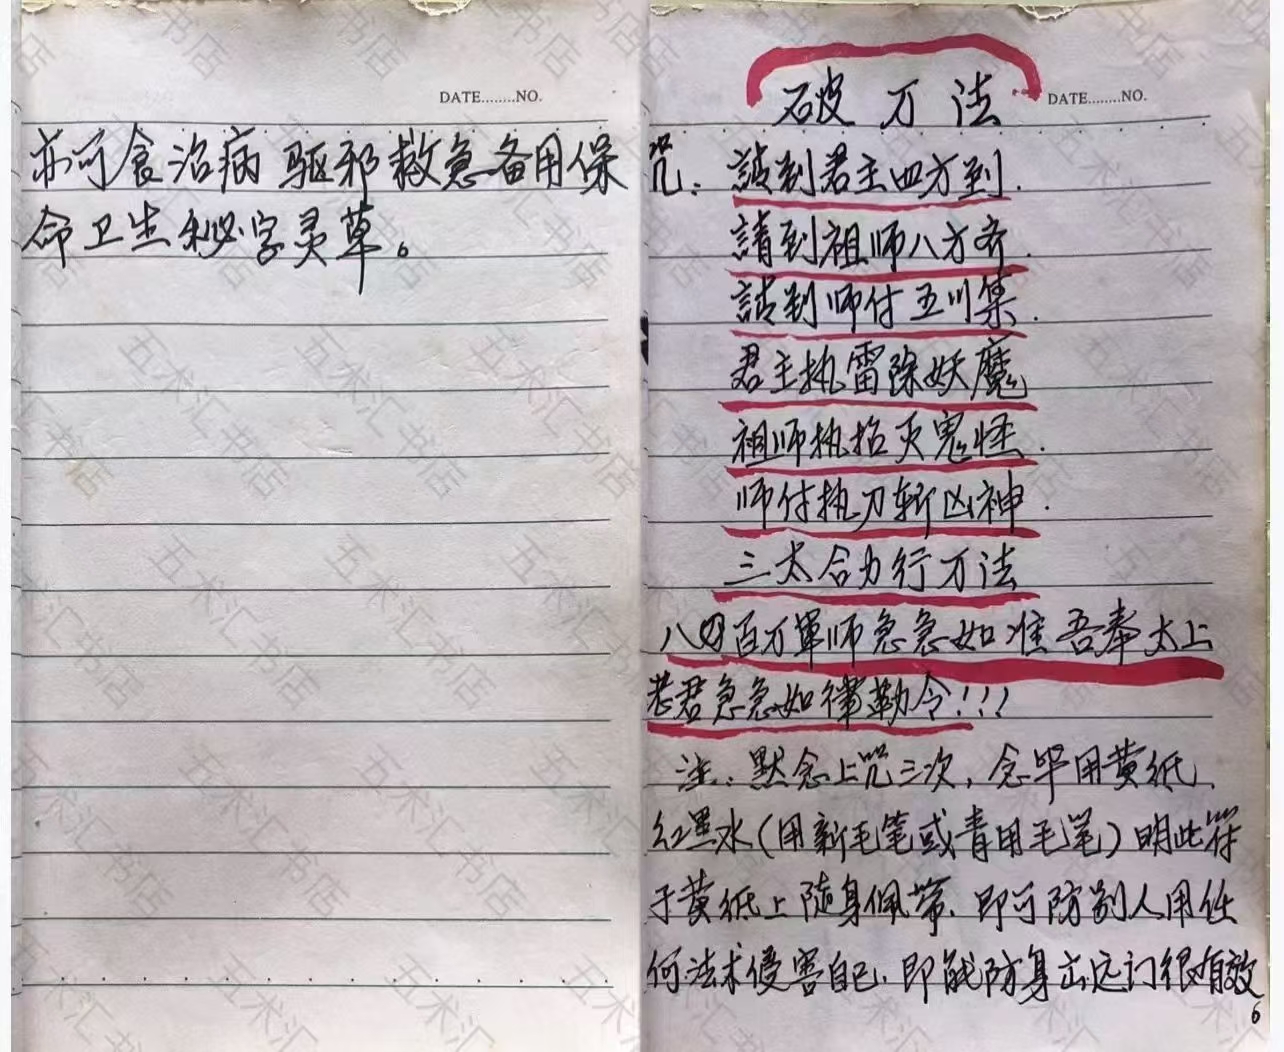 DATE........NO.
亦可食治病驱邪救急备用保
命卫生秘字灵草。
DATE........NO.
破万法
咒：請到君主四方到.
請到祖师八方齐.
請到师付五川集.
君主执雷除妖魔
祖师执掐灭鬼怪.
师付执刀斩凶神.
三太合力行万法
八百万軍师急急如准吾奉太上
老君急急如律勒令!!!
注：默念上咒三次，念毕用黄纸、
红墨水(用新毛笔或青用毛笔)明此符
于黄纸上随身佩带、即可防别人用任
何法术侵害自己.即能防身出远门很有效
6
五术汇书店